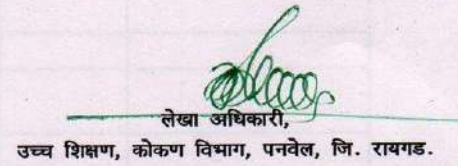 लेखा अधिकारी,
उच्च शिक्षण, कोकण विभाग, पनवेल, जि. रायगड.